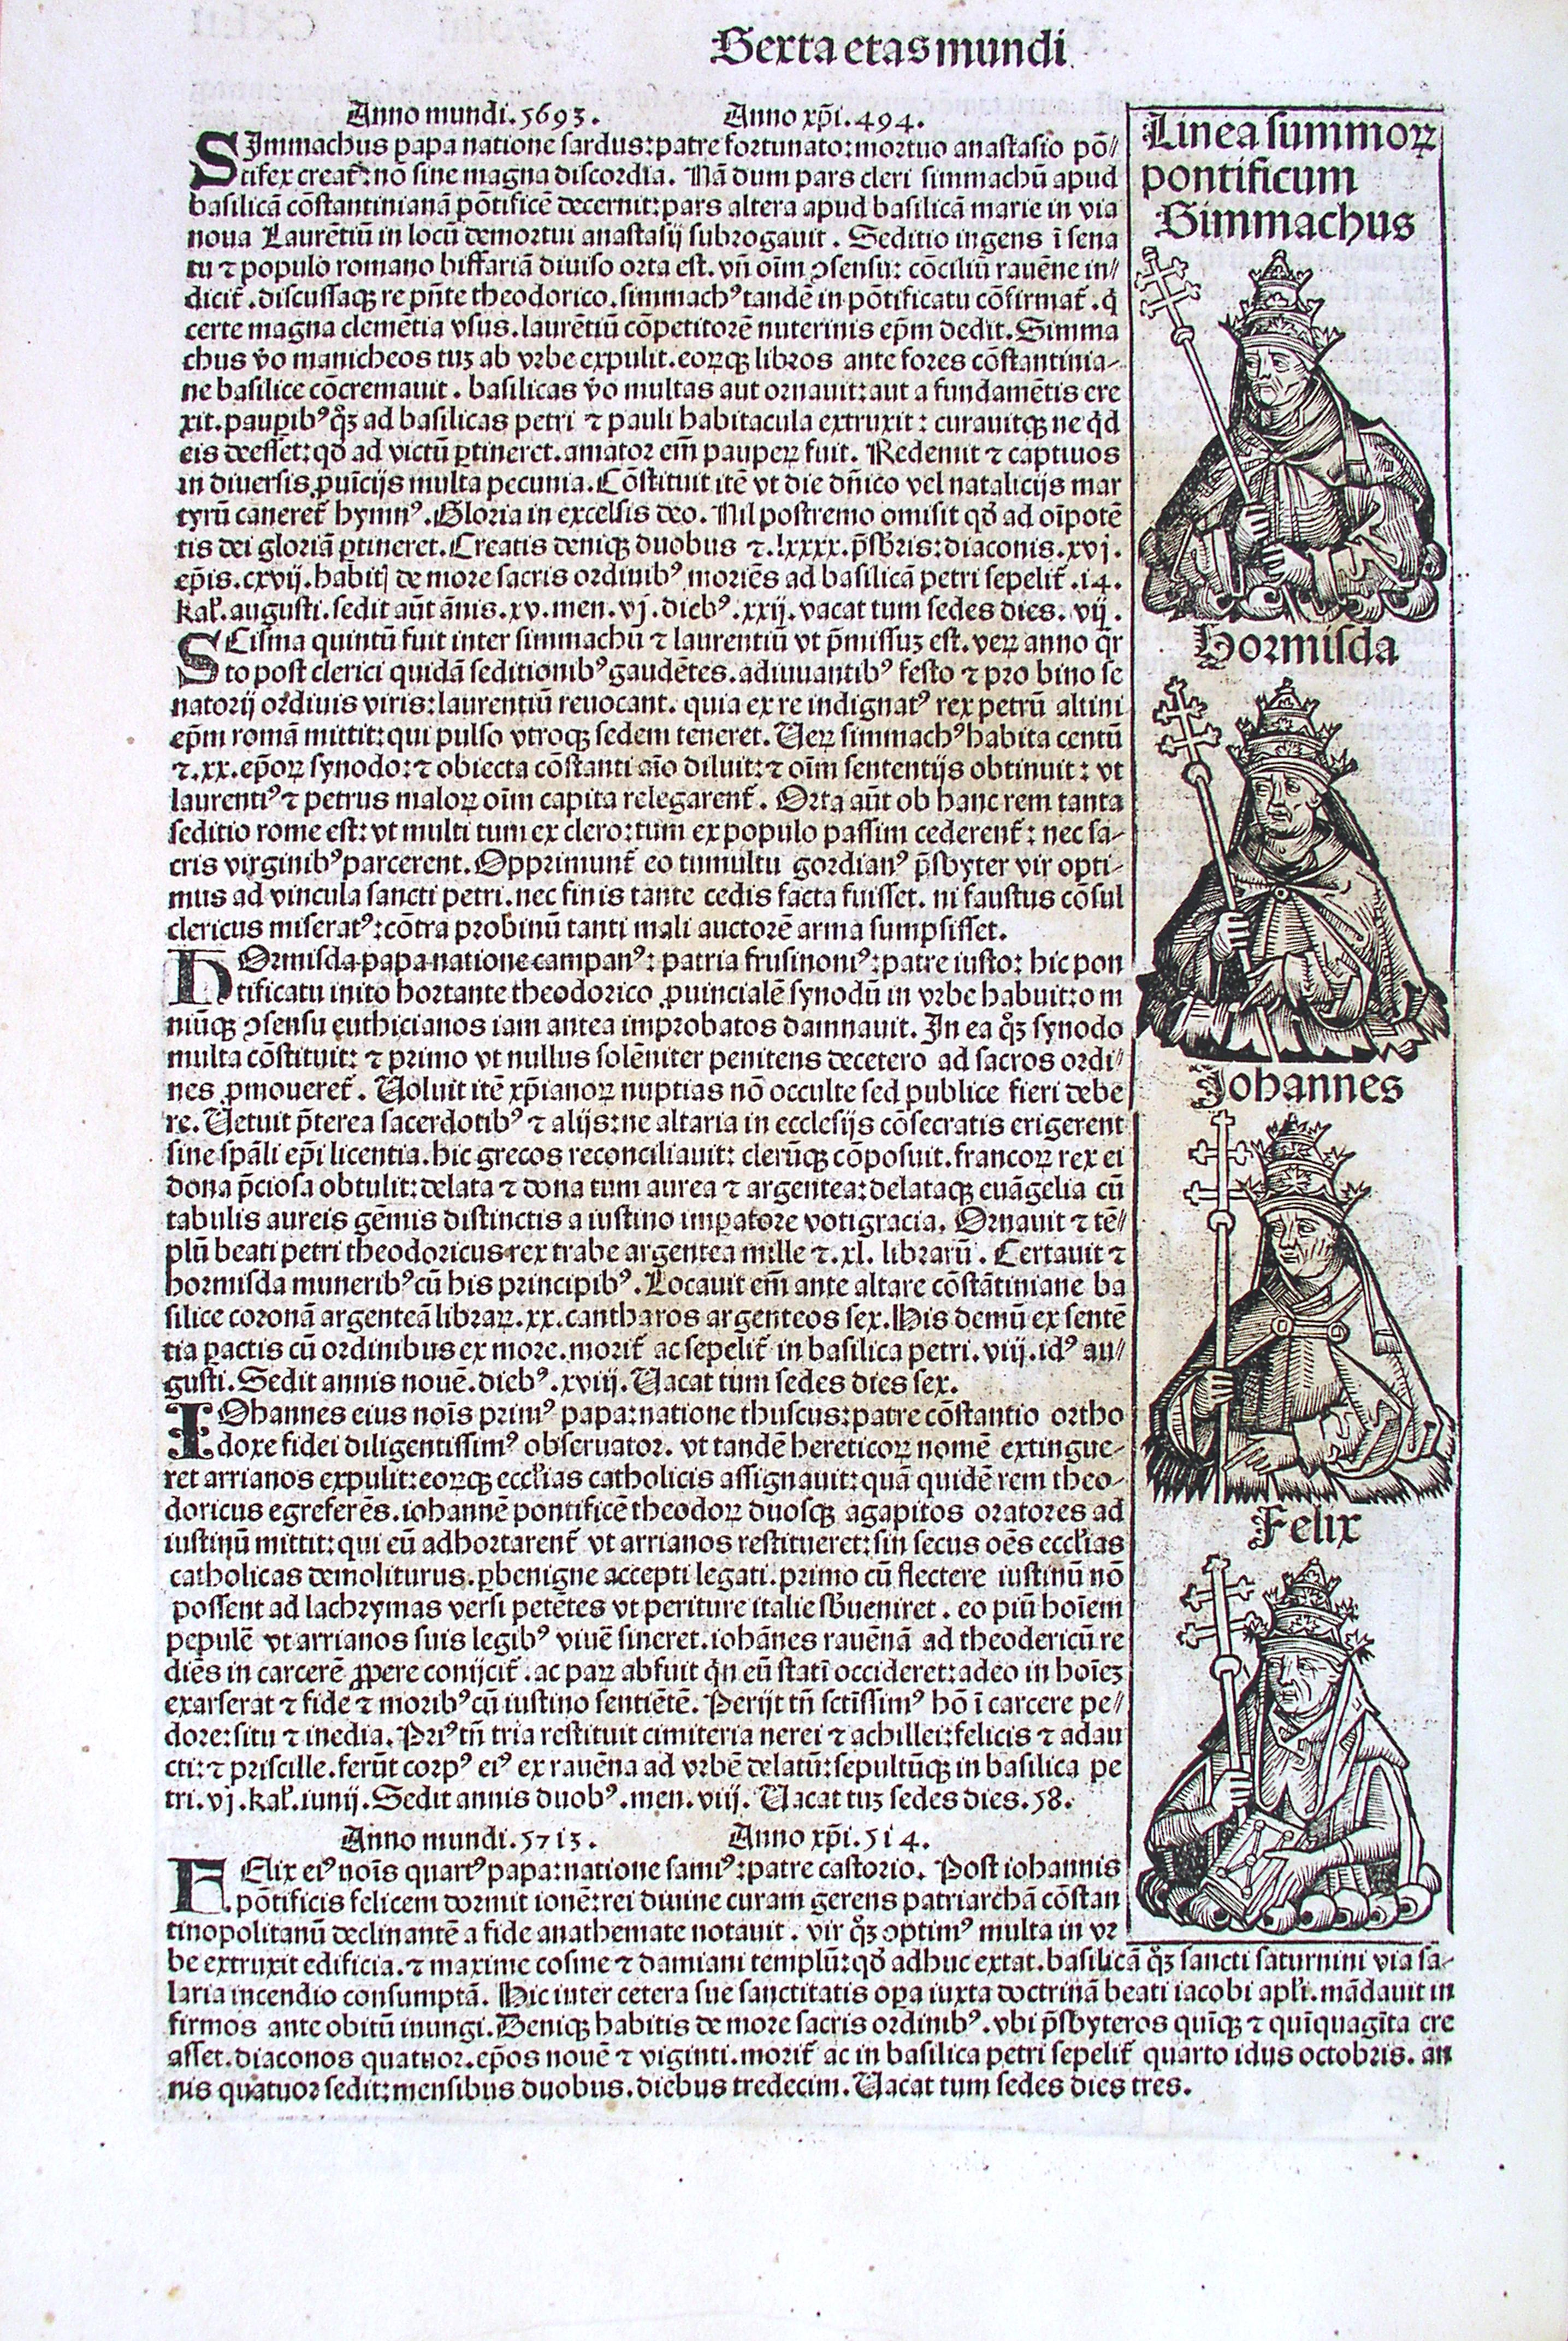 Sexta etas mundi
Anno mundi .5693. Anno xp̄i .494.
SImmachus papa natione sardus: patre fortunato: mortuo anastasio pō//
tifex creat᷑: nō sine magna discordia. Nā dum pars cleri simmachū apud
basilicā cōstantinianā pōtificē decernit: pars altera apud basilicā marie in via
noua Laurētiū in locū demortui anastasij subrogauit. Seditio ingens ī sena
tu ⁊ populo romano biffariā diuiso orta est. vñ oīm ꝯsensu: cōciliū rauēne in//
dicit᷑. discussaqꝫ re pñte theodorico. simmachꝰ tandē in pōtificatu cōfirmat᷑. q̇
certe magna clemētia vsus. laurētiū cōpetitorē nuterinis ep̄m dedit. Simma
chus v̄o manicheos tuꝫ ab vrbe expulit. eorꝝqꝫ libros ante fores cōstantinia-
ne basilice cōcremauit. basilicas v̄o multas aut ornauit: aut a fundamētis ere
xit. pauꝑibꝰ qꝫ ad basilicas petri ⁊ pauli habitacula extruxit: curauitqꝫ ne qd
eis deesset: qď ad victū ꝑtineret. amator em̄ pauperꝝ fuit. Redemit ⁊ captiuos
in diuersis ꝓuīcijs multa pecunia. Cōstituit itē vt die dñico vel natalicijs mar
tyrū caneret᷑ hymnꝰ. Gloria in excelsis deo. Nil postremo omisit qď ad oīpotē
tis dei gloriā ꝑtineret. Creatis deniqꝫ duobus ⁊ .lxxxx. p̄sbris: diaconis .xvj.
ep̄is .cxvij. habitꝭ de more sacris ordinibꝰ moriēs ad basilicā petri sepelit᷑ .14.
kal᷑. augusti. sedit aūt ānis .xv. men. vj. diebꝰ .xxij. vacat tum sedes dies. vij.
SCisma quintū fuit inter simmachū ⁊ laurentiū vt p̄missuꝫ est. veꝝ anno qr
to post clerici quidā seditionibꝰ gaudētes. adiuuantibꝰ festo ⁊ pro bino se
natorij ordinis viris: laurentiū reuocant. quia ex re indignatꝰ rex petrū altini
ep̄m romā mittit: qui pulso vtroqꝫ sedem teneret. Ueꝝ simmachꝰ habita centū
⁊ .xx. ep̄orꝝ synodo: ⁊ obiecta cōstanti aīo diluit: ⁊ oīm sententijs obtinuit: vt
laurentiꝰ ⁊ petrus malorꝝ oīm capita relegarent᷑. Orta aūt ob hanc rem tanta
seditio rome est: vt multi tum ex clero: tum ex populo passim cederent᷑: nec sa-
cris virginibꝰ parcerent. Opprimunt᷑ eo tumultu gordianꝰ p̄sbyter vir opti-
mus ad vincula sancti petri. nec finis tante cedis facta fuisset. ni faustus cōsul
clericus miseratꝰ: cōtra probinū tanti mali auctorē arma sumpsisset.
HOrmisda papa natione campanꝰ: patria frusinoniꝰ: patre iusto: hic pon
tificatu inito hortante theodorico ꝓuincialē synodū in vrbe habuit: om
niūqꝫ ꝯsensu euthicianos iam antea improbatos damnauit. In ea qꝫ synodo
multa cōstituit: ⁊ primo vt nullus solēniter penitens decetero ad sacros ordi//
nes ꝓmoueret᷑. Uoluit itē xp̄ianorꝝ nuptias nō occulte sed publice fieri debe
re. Uetuit p̄terea sacerdotibꝰ ⁊ alijs: ne altaria in ecclesijs cōsecratis erigerent
sine sp̄ali ep̄i licentia. hic grecos reconciliauit: clerūqꝫ cōposuit. francorꝝ rex ei
dona p̄ciosa obtulit: delata ⁊ dona tum aurea ⁊ argentea: delataqꝫ euāgelia cū
tabulis aureis gēmis distinctis a iustino imꝑatore voti gracia. Ornauit ⁊ tē//
plū beati petri theodoricus rex trabe argentea mille ⁊ .xl. librarū. Certauit ⁊
hormisda muneribꝰ cū his principibꝰ. Locauit em̄ ante altare cōstātiniane ba
silice coronā argenteā librarꝝ .xx. cantharos argenteos sex. His demū ex sentē
tia ꝑactis cū ordinibus ex more. morit᷑ ac sepelit᷑ in basilica petri .viij. idꝰ au//
gusti. Sedit annis nouē. diebꝰ .xviij. Uacat tum sedes dies sex.
IOhannes eius noīs primꝰ papa: natione thuscus: patre cōstantio ortho
doxe fidei diligentissimꝰ obseruator. vt tandē hereticorꝝ nomē extingue-
ret arrianos expulit: eorꝝqꝫ eccl̄ias catholicis assignauit: quā quidē rem theo-
doricus egre ferēs. iohannē pontificē theodorꝝ duosqꝫ agapitos oratores ad
iustinū mittit: qui eū adhortarent᷑ vt arrianos restitueret: sin secus oēs eccl̄ias
catholicas demoliturus. ꝑbenigne accepti legati. primo cū flectere iustinū nō
possent ad lachrymas versi petētes vt periture italie sb̄ueniret. eo piū hoīem
pepulē vt arrianos suis legibꝰ viuē sineret. iohānes rauēnā ad theodericū re
diēs in carcerē ꝓpere conijcit᷑. ac parꝝ abfuit q̇n eū statī occideret: adeo in hoīeꝫ
exarserat ⁊ fide ⁊ moribꝰ cū iustino sentiētē. Perijt tñ sctīssimꝰ hō ī carcere pe//
dore: situ ⁊ inedia. Priꝰ tñ tria restituit cimiteria nerei ⁊ achillei: felicis ⁊ adau
cti: ⁊ priscille. ferūt corpꝰ eiꝰ ex rauēna ad vrbē delatū: sepultūqꝫ in basilica pe
tri. vj. kal᷑. iunij. Sedit annis duobꝰ. men. viij. Uacat tuꝫ sedes dies .58.
Anno mundi .5713. Anno xp̄i .514.
FElix eiꝰ noīs quartꝰ papa: natione samiꝰ: patre castorio. Post iohannis
pōtificis felicem dormit ionē: rei diuine curam gerens patriarchā cōstan
tinopolitanū declinantē a fide anathemate notauit. vir qꝫ ꝯptimꝰ multa in vr
be extruxit edificia. ⁊ maxime cosme ⁊ damiani templū: qď adhuc extat. basilicā qꝫ sancti saturnini via sa-
laria incendio consumptā. Hic inter cetera sue sanctitatis oꝑa iuxta doctrinā beati iacobi apl̄i. mādauit in
firmos ante obitū inungi. Deniqꝫ habitis de more sacris ordinibꝰ. vbi p̄sbyteros quīqꝫ ⁊ quīquagīta cre
asset. diaconos quatuor. ep̄os nouē ⁊ viginti. morit᷑ ac in basilica petri sepelit᷑ quarto idus octobris. an
nis quatuor sedit: mensibus duobus. diebus tredecim. Uacat tum sedes dies tres.
Linea summorꝝ
pontificum
Simmachus
Hormisda
Johannes
Felix